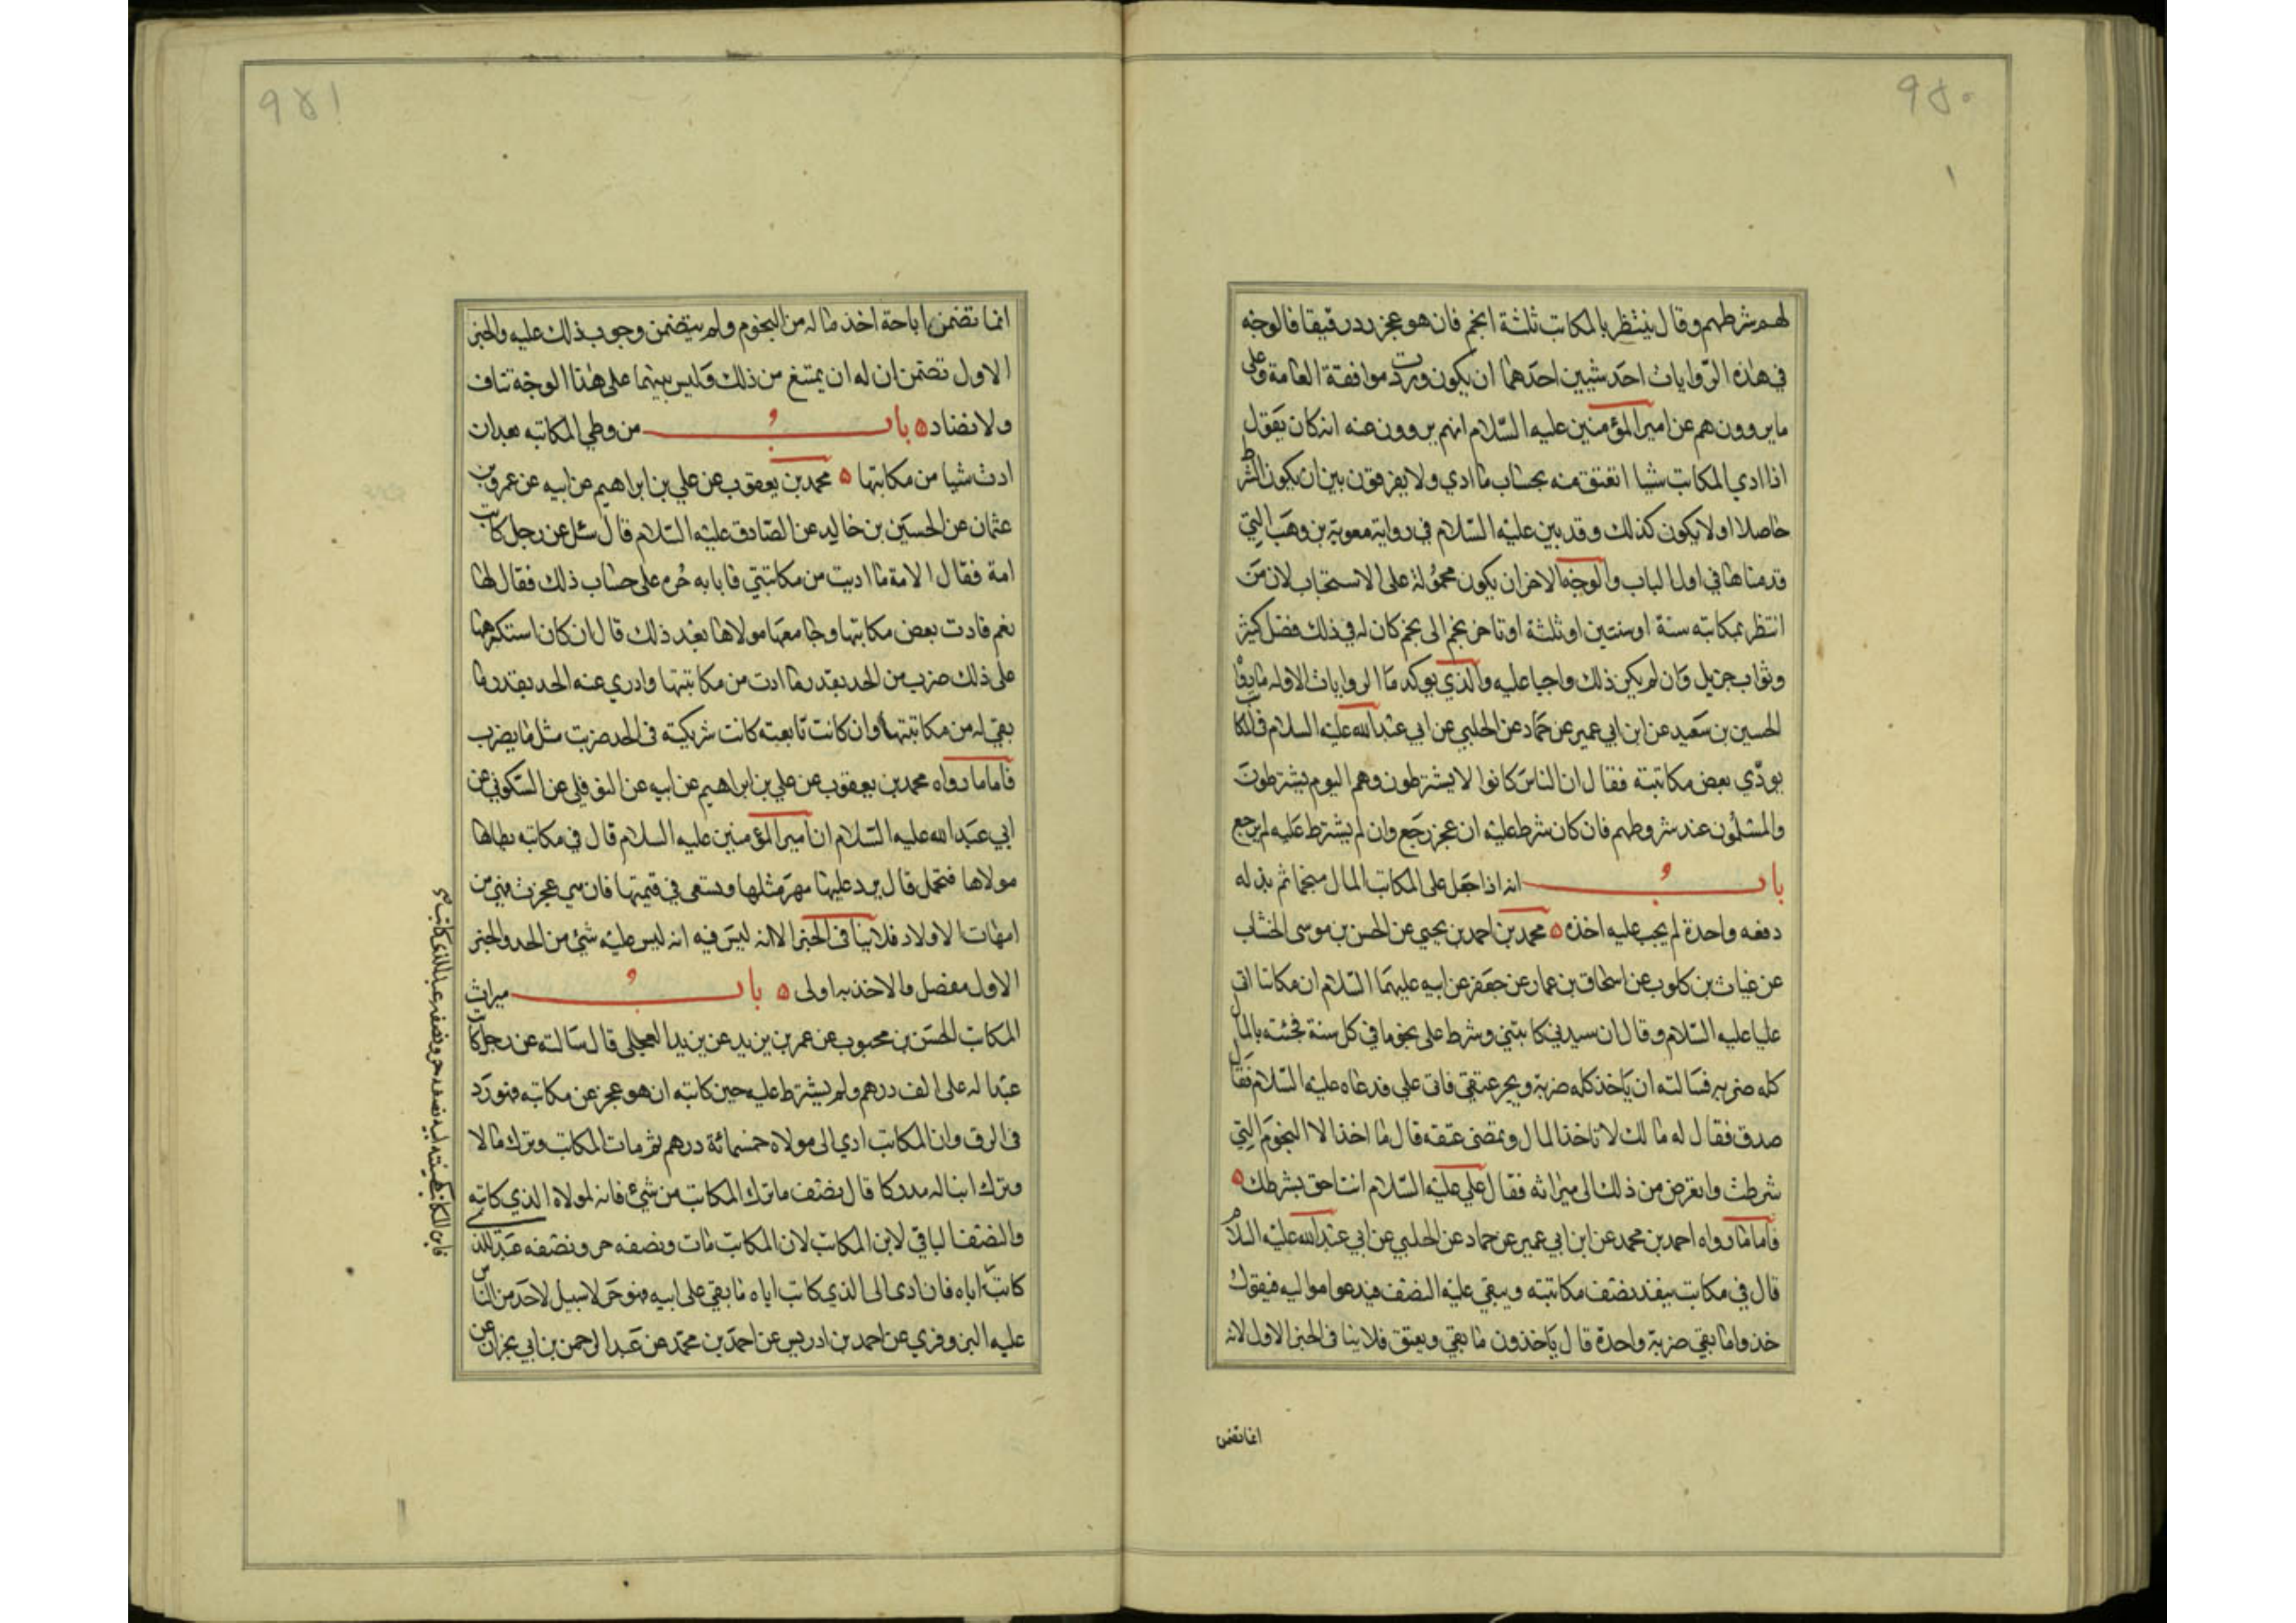 ۹۵۰
لهم شرطهم وقال ينتظر بالمكاتب ثلثة انجم فان هو عجز رد رقيقا فالوجه
في هذه الروايات احد شيئين احدهما ان يكون وردت موافقة العامة وعلى
ما يروون هم عن امير المؤمنين عليه السلام انهم يروون عنه انه كان يقول
اذا ادي المكاتب شيا انعتق منه بحساب ما ادي ولا يفرقون بين ان يكون الشرط
حاصلا او لا يكون كذلك وقد بين عليه السلام في رواية معوية بن وهب التي
قدمناها في اول الباب والوجه الاخر ان يكون محمولة على الاستحباب لان من
انتظر بمكاتبه سنة او سنتين او ثلثة او تاخر نجم الى نجم كان له في ذلك فضل كثير
وثواب جزيل وان لم يكن ذلك واجبا عليه والذي يوكد ما الروايات الاوله ما رواه
الحسين بن سعيد عن ابن ابي عمير عن حماد عن الحلبي عن ابي عبد الله عليه السلام في المكاتب
يودّي بعض مكاتبته فقال ان الناس كانوا لا يشترطون وهم اليوم يشترطون
والمسلمون عند شروطهم فان كان شرط عليه ان عجز رجع وان لم يشترط عليه لم يرجع
باب انه اذا جعل على المكاتب المال منجما ثم بذله
دفعه واحدة لم يجب عليه اخذه ۵ محمد بن احمد بن يحيى عن الحسن بن موسى الخشاب
عن غياث بن كلوب عن اسحاق بن عمار عن جعفر عن ابيه عليهما السلام ان مكاتبا اتى
عليا عليه السلام وقال ان سيدي كاتبني وشرط على نجوما في كل سنة فجئته بالمال
كله ضربه فسالته ان ياخذ كله ضربة ويجر عتقي فابى علي فدعاه عليه السلام فقال
صدق فقال له ما لك لا تاخذ المال وتمضى عتقه قال ما اخذ الا النجوم التي
شرطت واتعرض من ذلك الى ميراثه فقال علي عليه السلام انت احق بشرطك ۵
فاما ما رواه احمد بن محمد عن ابن ابي عمير عن حماد عن الحلبي عن ابي عبد الله عليه السلام
قال في مكاتب ينقد نصف مكاتبته ويبقى عليه النصف فيدعوا مواليه فيقول
خذوا ما بقي ضربة واحدة قال ياخذون ما بقي ويعتق فلا ينافى الخبر الاول لانه
انما تضمن
۹۵۱
انما تضمن اباحة اخذ ماله من النجوم ولم يتضمن وجوب ذلك عليه والخبر
الاول تضمن ان له ان يمتنع من ذلك وليس بينهما على هذا الوجه تناف
ولا تضاد ۵ باب من وطي المكاتبه بعد ان
ادت شيا من مكاتبتها ۵ محمد بن يعقوب عن علي بن ابراهيم عن ابيه عن عمرو بن
عثمان عن الحسين بن خالد عن الصادق عليه السلام قال سئل عن رجل كاتب
امة فقال الامة ما اديت من مكاتبتي فانا به حرة على حساب ذلك فقال لها
نعم فادت بعض مكاتبتها وجامعها مولاها بعد ذلك قال ان كان استكرهها
على ذلك ضرب من الحد بقدر ما ادت من مكاتبتها وادري عنه الحد بقدر ما
بقي له من مكاتبتها وان كانت تابعته كانت شريكته في الحد ضربت مثل ما يضرب
فاما ما رواه محمد بن يعقوب عن علي بن ابراهيم عن ابيه عن النوفلي عن السكوني عن
ابي عبد الله عليه السلام ان امير المؤمنين عليه السلام قال في مكاتبه يطاها
مولاها فتحمل قال يرد عليها مهر مثلها وتسعى في قيمتها فان هي عجزت فهي من
امهات الاولاد فلا ينافى الخبر الا انه ليس فيه انه ليس عليه شيء من الحد والخبر
الاول مفصل فالاخذ به اولى ۵ باب ميراث
المكاتب الحسن بن محبوب عن عمر بن يزيد عن بريد العجلي قال سالته عن رجل كاتب
عبدا له على الف درهم ولم يشترط عليه حين كاتبه ان هو عجز عن مكاتبه فهو رد
في الرق وان المكاتب ادي الى مولاه خمسمائة درهم ثم مات المكاتب وترك مالا
وترك ابنا له مدركا قال نصف ما ترك المكاتب من شيء فانه لمولاه الذي كاتبه
والنصف الباقي لابن المكاتب لان المكاتب مات ونصفه حر ونصفه عبد للذي
كاتب اباه فان ادى الى الذي كاتب اباه ما بقي على ابيه فهو حر لا سبيل لاحد من الناس
عليه البزوفري عن احمد بن ادريس عن احمد بن محمد عن عبد الرحمن بن ابي نجران عن
فابن المكاتب كهيئة ابيه نصفه حر ونصفه عبد للذي كاتب